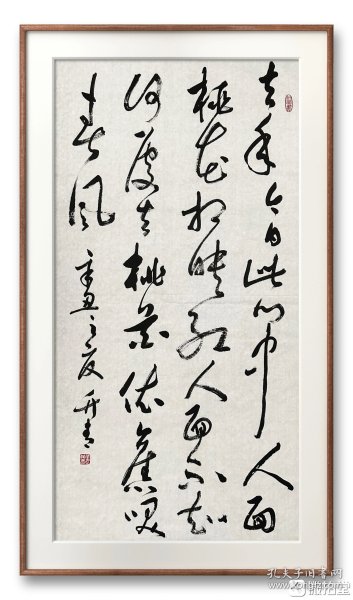 去年今日此门中人面
桃花相映红人面不知
何處去桃花依舊笑
春風
辛丑之夏
孔夫子旧书网
微拍堂